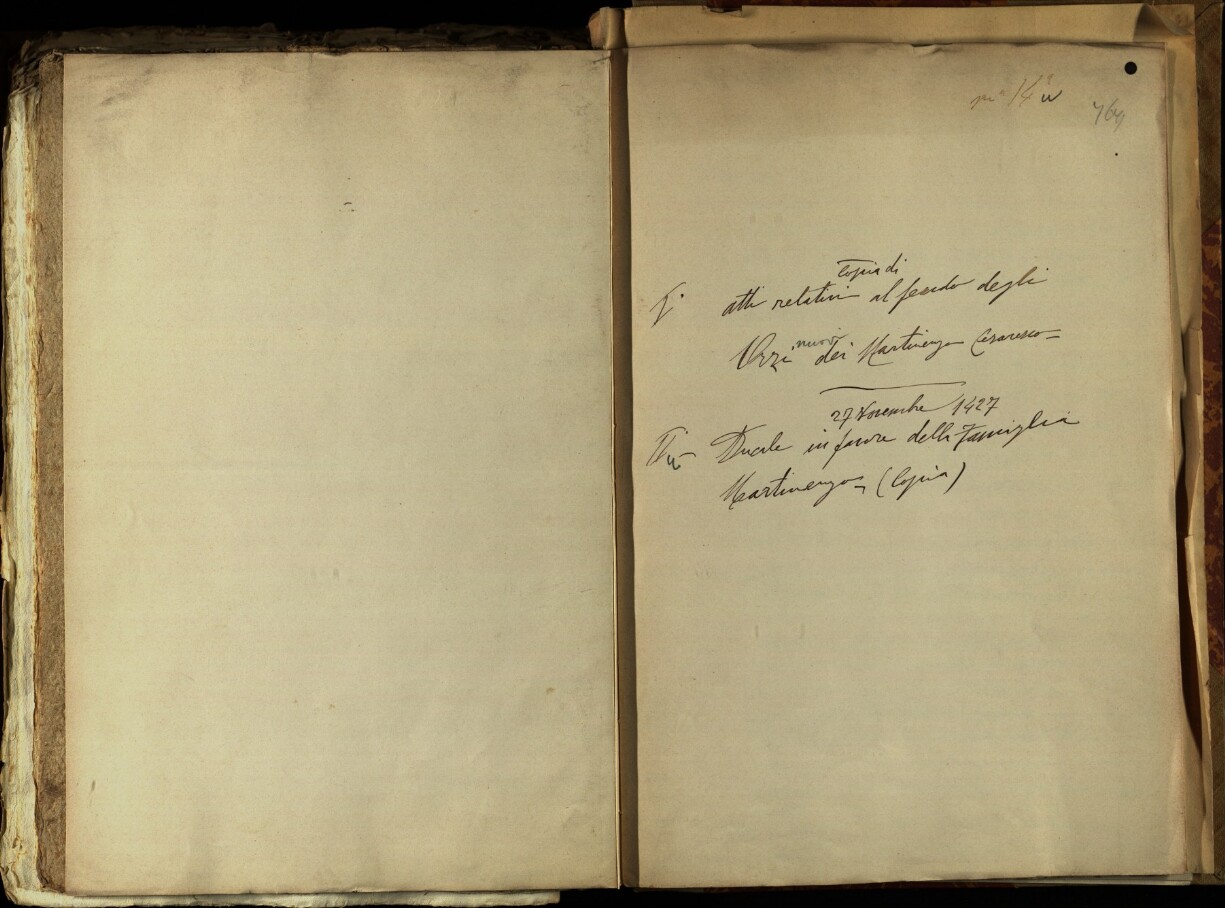 nº 14
769
copia di
I° atti relativi al feudo degli
Orzi nuovi dei Martinengo Cesaresco
27 Novembre 1427
II° Ducale in favore della Famiglia
Martinengo (Copia)